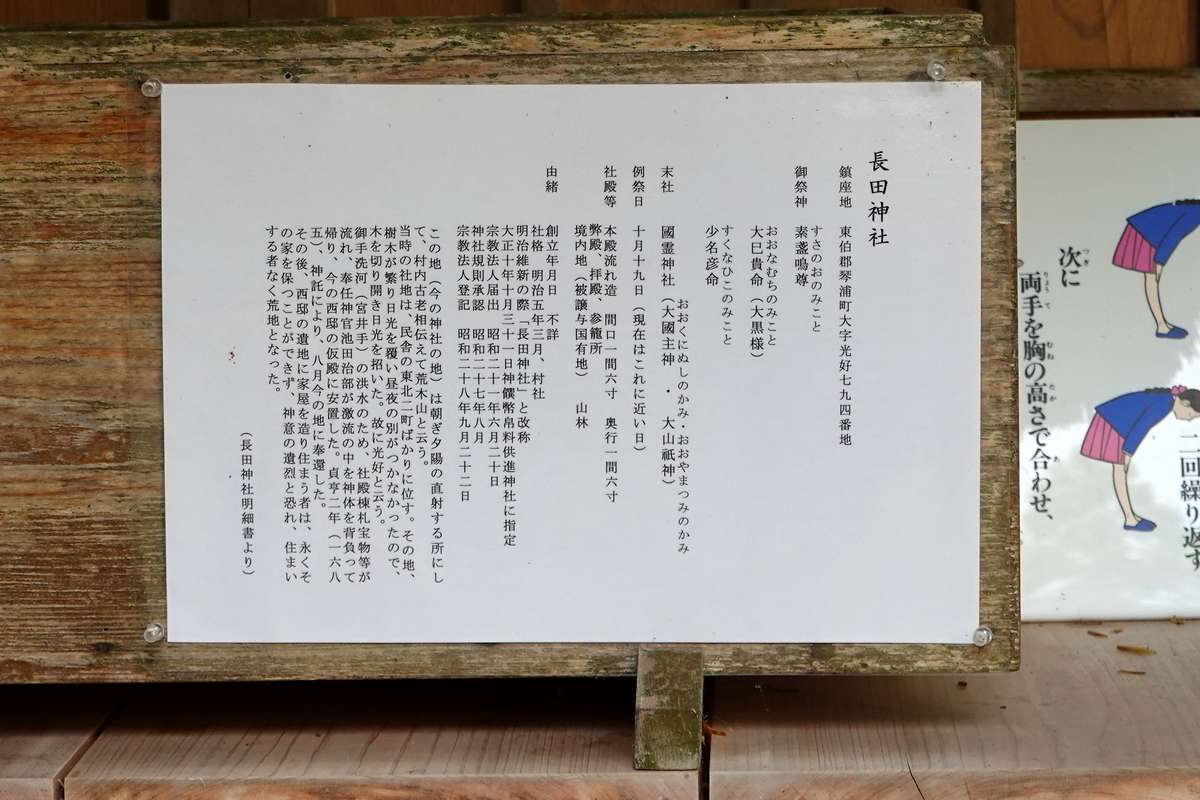 長田神社
鎮座地　東伯郡琴浦町大字光好七九四番地
御祭神　素盞鳴尊
すさのおのみこと
大巳貴命（大黒様）
おおなむちのみこと
少名彦命
すくなひこのみこと
末社　國霊神社　（大國主神　・　大山祇神）
おおくにぬしのかみ・おおやまつみのかみ
例祭日　十月十九日（現在はこれに近い日）
社殿等　本殿流れ造　間口一間六寸　奥行一間六寸
弊殿、拝殿、参籠所
境内地（被譲与国有地）　山林
由緒　創立年月日　不詳
社格　明治五年三月、村社
明治維新の際「長田神社」と改称
大正十年十月三十一日神饌幣帛料供進神社に指定
宗教法人届出　昭和二十一年六月二十日
神社規則承認　昭和二十七年八月
宗教法人登記　昭和二十八年九月二十二日
この地（今の神社の地）は朝ぎ夕陽の直射する所にし
て、村内古老相伝えて荒木山と云う。
当時の社地は、民舎の東北二町ばかりに位す。その地、
樹木が繁り日光を覆い昼夜の別がつかなかったので、
木を切り開き日光を招いた。故に光好と云う。
御手洗河（宮井手）の洪水のため、社殿棟札宝物等が
流れ、奉任神官池田治部が激流の中を神体を背負って
帰り、今の西邸の仮殿に安置した。貞亨二年（一六八
五）、神託により、八月今の地に奉還した。
その後、西邸の遺地に家屋を造り住まう者は、永くそ
の家を保つことができず、神意の遺烈と恐れ、住まい
する者なく荒地となった。
（長田神社明細書より）
二回繰り返す
次に
つぎ
両手を胸の高さで合わせ、
りょうて　むね　たか　あ